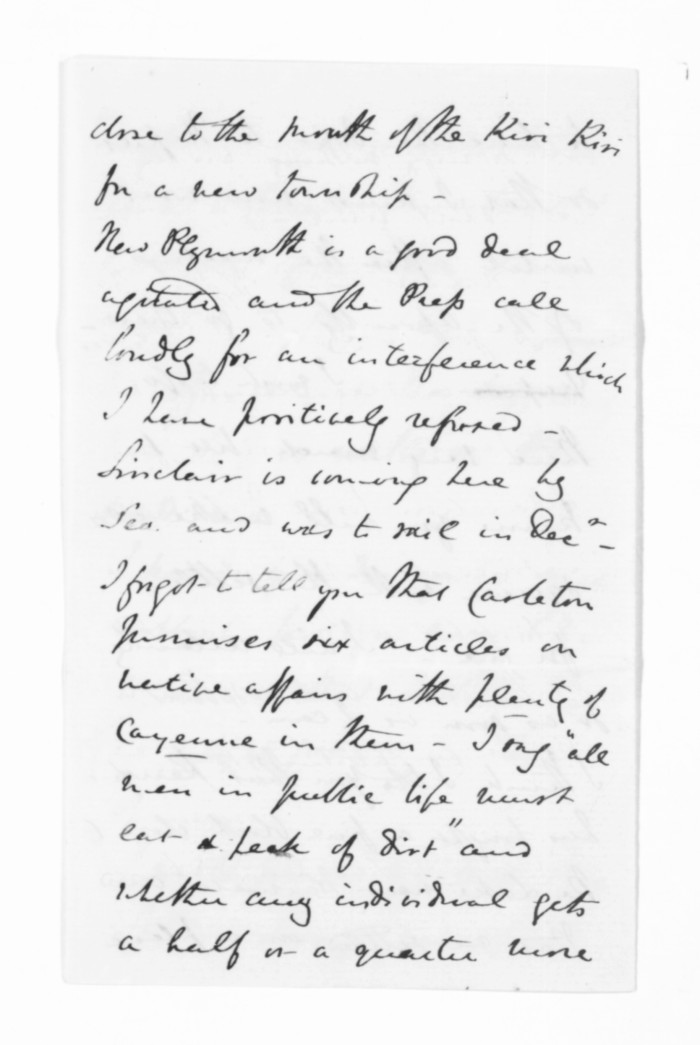 close to the mouth of the Kiri Kiri
for a new township -
New Plymouth is a good deal
agitated and the Press call
loudly for an interference which
I have positively refused -
Sinclair is coming here by
Sea. and was to sail in Decr -
I forgot to tell you that Carleton
promises six articles on
native affairs with plenty of
Cayenne in them - I say "all
men in public life must
eat a peck of dirt" and
whether any individual gets
a half or a quarter more